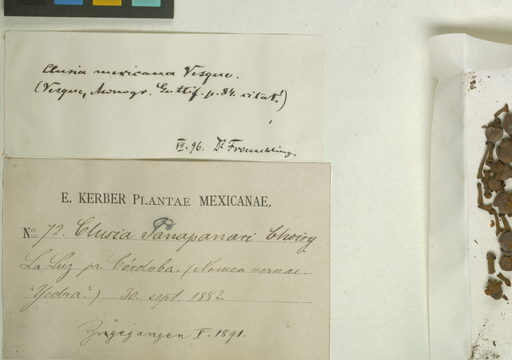 Clusia mexicana Vesque.
(Vesque, Monogr. Guttif. p. 84. citat!)
VII. 96. Dr Froembling.
E. KERBER PLANTAE MEXICANAE.
No 72. Clusia Panapanari Choisy
La Luz pr. Córdoba. (Nomen vernac.
"Yedra.") 30. sept. 1882
Zugegangen V. 1891.